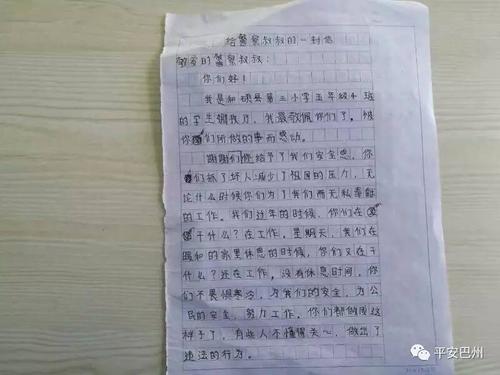 给警察叔叔的一封信
敬爱的警察叔叔：
你们好！
我是和硕县第三小学五年级4班
的学生谢我力，我最敬佩你们了。被
你们所做的事而感动。
谢谢们你给予了我们安全感，你
们抓了坏人减少了祖国的压力，无
论什么时候你们为了我们而无私奉献
的工作。我们过年的时候，你们在
干什么？在工作。星期天，我们在
暖和的家里休息的时候，你们又在干
什么？还在工作。没有休息时间，你
们不畏惧寒冷，为我们的安全，为公
民的安全，努力工作。你们都做成这
样子了，有些人不懂得关心，做出了
违法的行为。
平安巴州